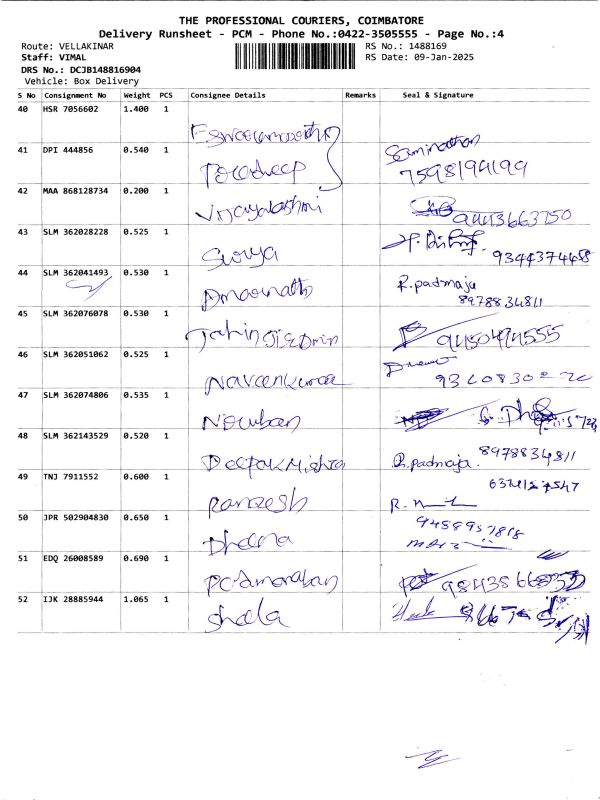 THE PROFESSIONAL COURIERS, COIMBATORE
Delivery Runsheet - PCM - Phone No.:0422-3505555 - Page No.:4
Route: VELLAKINAR RS No.: 1488169
Staff: VIMAL RS Date: 09-Jan-2025
DRS No.: DCJB148816904
Vehicle: Box Delivery
S No Consignment No Weight PCS Consignee Details Remarks Seal & Signature
40 HSR 7056602 1.400 1
41 DPI 444856 0.540 1 Saminathan
7598194199
42 MAA 868128734 0.200 1 Vijayalakshmi 9443663750
43 SLM 362028228 0.525 1 Surya 9344374468
44 SLM 362041493 0.530 1 R. padmaja
8978834811
45 SLM 362076078 0.530 1
46 SLM 362051062 0.525 1 Naveenkumar
47 SLM 362074806 0.535 1
48 SLM 362143529 0.520 1 Deepak Mishra R. padmaja. 8978834811
49 TNJ 7911552 0.600 1
50 JPR 502904830 0.650 1 9458957818
51 EDQ 26008589 0.690 1
52 IJK 28885944 1.065 1 Sheela